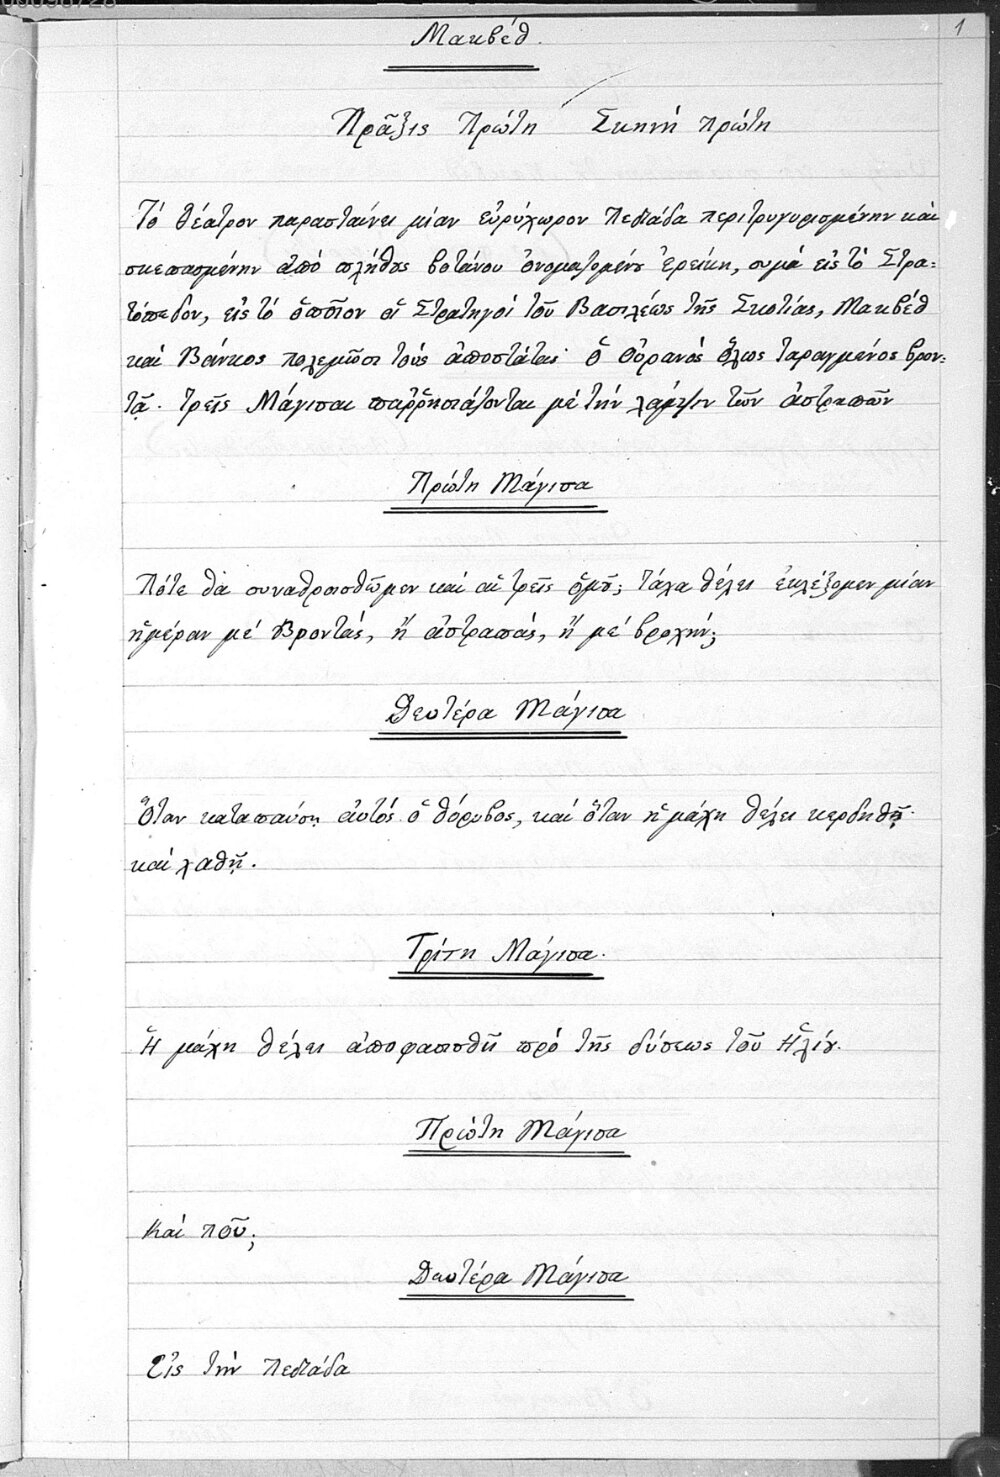 1
Μακβέθ.
Πρᾶξις Πρώτη Σκηνή πρώτη
Τό θέατρον παρασταίνει μίαν εὐρύχωρον πεδιάδα περιτριγυρισμένην καί
σκεπασμένην ἀπό πλῆθος βοτάνου ὀνομαζομένȣ ἐρείκη, σιμά εἰς τό Στρα-
τόπεδον, εἰς τό ὁποῖον οἱ Στρατηγοί τοῦ Βασιλέως τῆς Σκοτίας, Μακβέθ
καί Βάνκος πολεμῶσι τούς ἀποστάτας· ὁ Οὐρανός ὅλως ταραγμένος βρον-
τᾷ. τρεῖς Μάγισαι παῤῥησιάζονται μέ τήν λάμψιν τῶν ἀστραπῶν
Πρώτη Μάγισα
Πότε θά συναθροισθῶμεν καί αἱ τρεῖς ὁμȣ͂; τάχα θέλει ἐκλέξομεν μίαν
ἡμέραν μέ βροντάς, ἤ ἀστραπάς, ἤ μέ βροχήν;
Δευτέρα Μάγισα
Ὅταν καταπαύσῃ αὐτός ὁ θόρυβος, καί ὅταν ἡ μάχη θέλει κερδηθῇ
καί χαθῇ.
Τρίτη Μάγισα.
Ἡ μάχη θέλει ἀποφασισθῆ πρό τῆς δύσεως τοῦ Ἡλίȣ.
Πρώτη Μάγισα
Καί ποῦ;
Δευτέρα Μάγισα
Εἰς τήν πεδιάδα